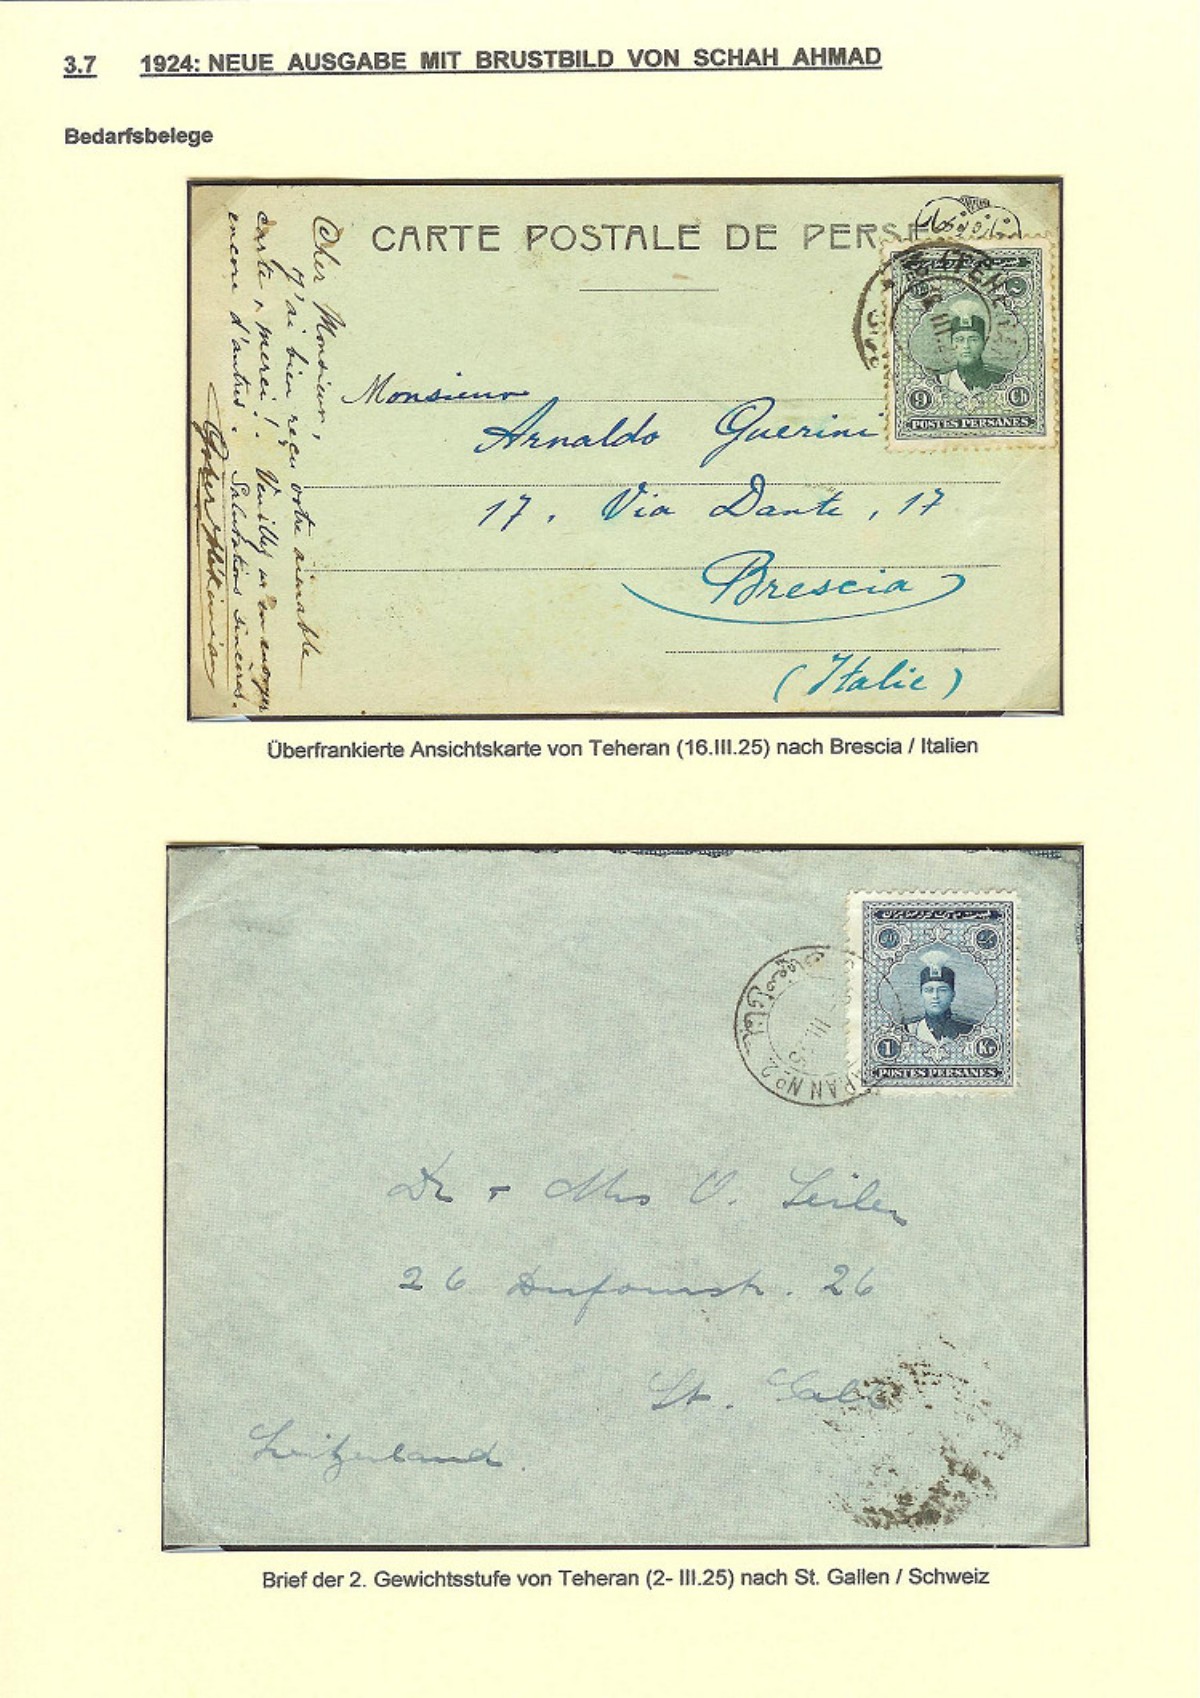 3.7 1924: NEUE AUSGABE MIT BRUSTBILD VON SCHAH AHMAD
Bedarfsbelege
CARTE POSTALE DE PERSE
Cher Monsieur,
J'ai bien reçu votre aimable
carte, merci! Veuillez m'en envoyer
encore d'autres. Salutations sincères.
9 Ch
POSTES PERSANES
Monsieur
Arnaldo Guerini
17, Via Dante, 17
Brescia
(Italie)
Überfrankierte Ansichtskarte von Teheran (16.III.25) nach Brescia / Italien
1 Kr
POSTES PERSANES
III.25
Nº 2
Dr & Mrs O. Seiler
26 Dufourstr. 26
St. Gall
Switzerland
Brief der 2. Gewichtsstufe von Teheran (2- III.25) nach St. Gallen / Schweiz